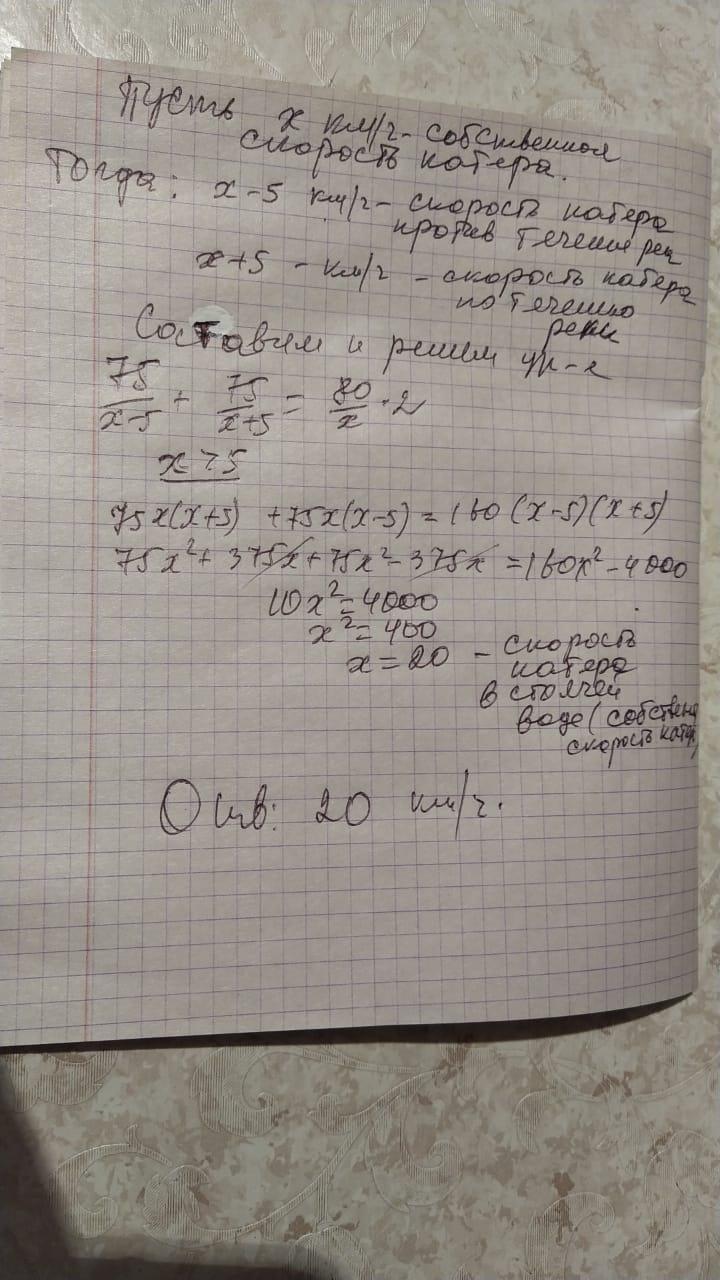 Пусть x км/ч - собственная
скорость катера.
Тогда: x-5 км/ч - скорость катера
против течения реки
x+5 - км/ч - скорость катера
по течению
реки
Составим и решим ур-е
75/(x-5) + 75/(x+5) = 80/x · 2
x>5
75x(x+5) + 75x(x-5) = 160(x-5)(x+5)
75x² + 375x + 75x² - 375x = 160x² - 4000
10x² = 4000
x² = 400
x = 20 - скорость
катера
в стоячей
воде (собствен
скорость катер
Отв: 20 км/ч.